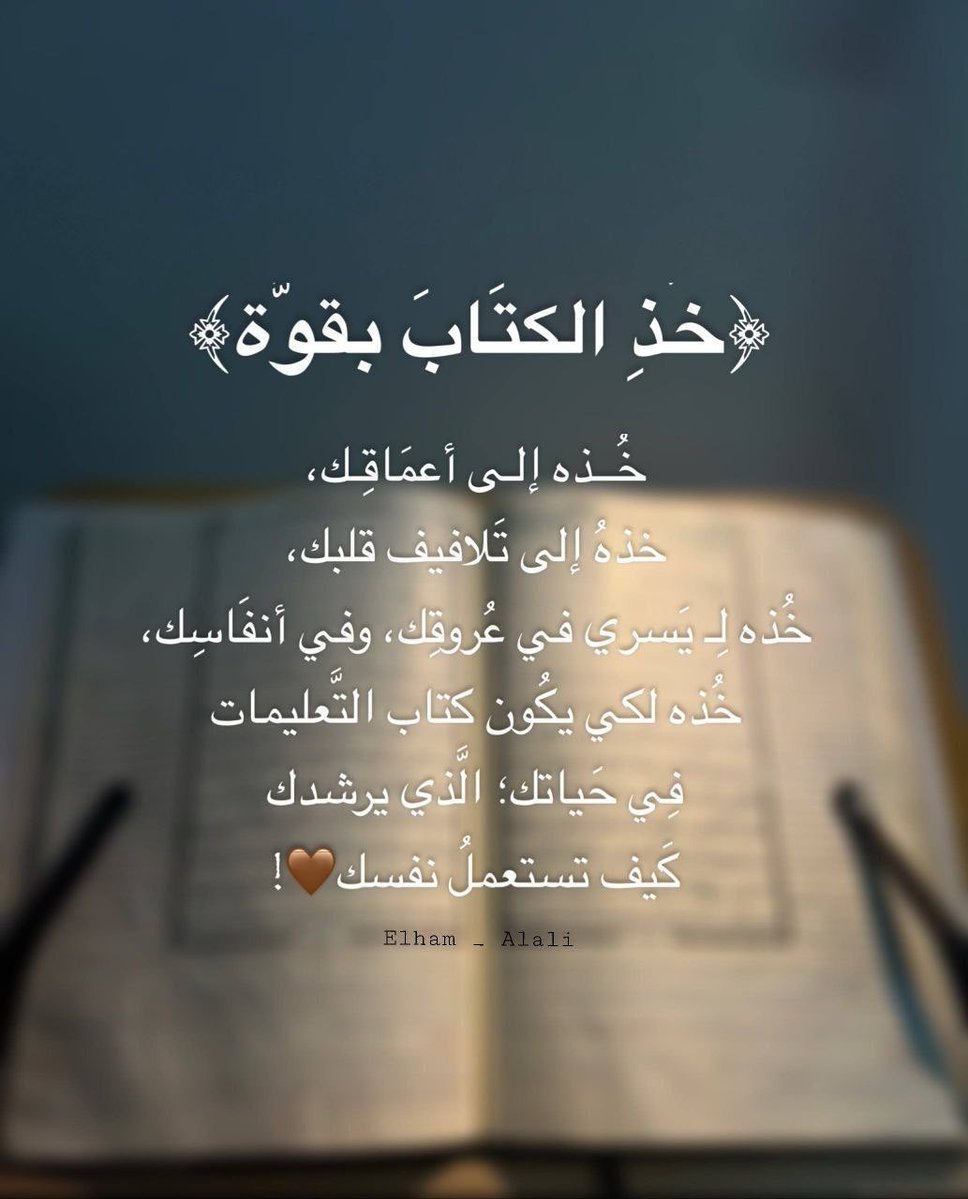 ﴿خذِ الكتَابَ بقوّة﴾
خُــذه إلـى أعمَاقِـك،
خذهُ إلى تَلافيف قلبك،
خُذه لِـ يَسري في عُروقِك، وفي أنفَاسِك،
خُذه لكي يكُون كتاب التَّعليمات
فِي حَياتك؛ الَّذي يرشدك
كَيف تستعملُ نفسك🤎!
Elham _ Alali